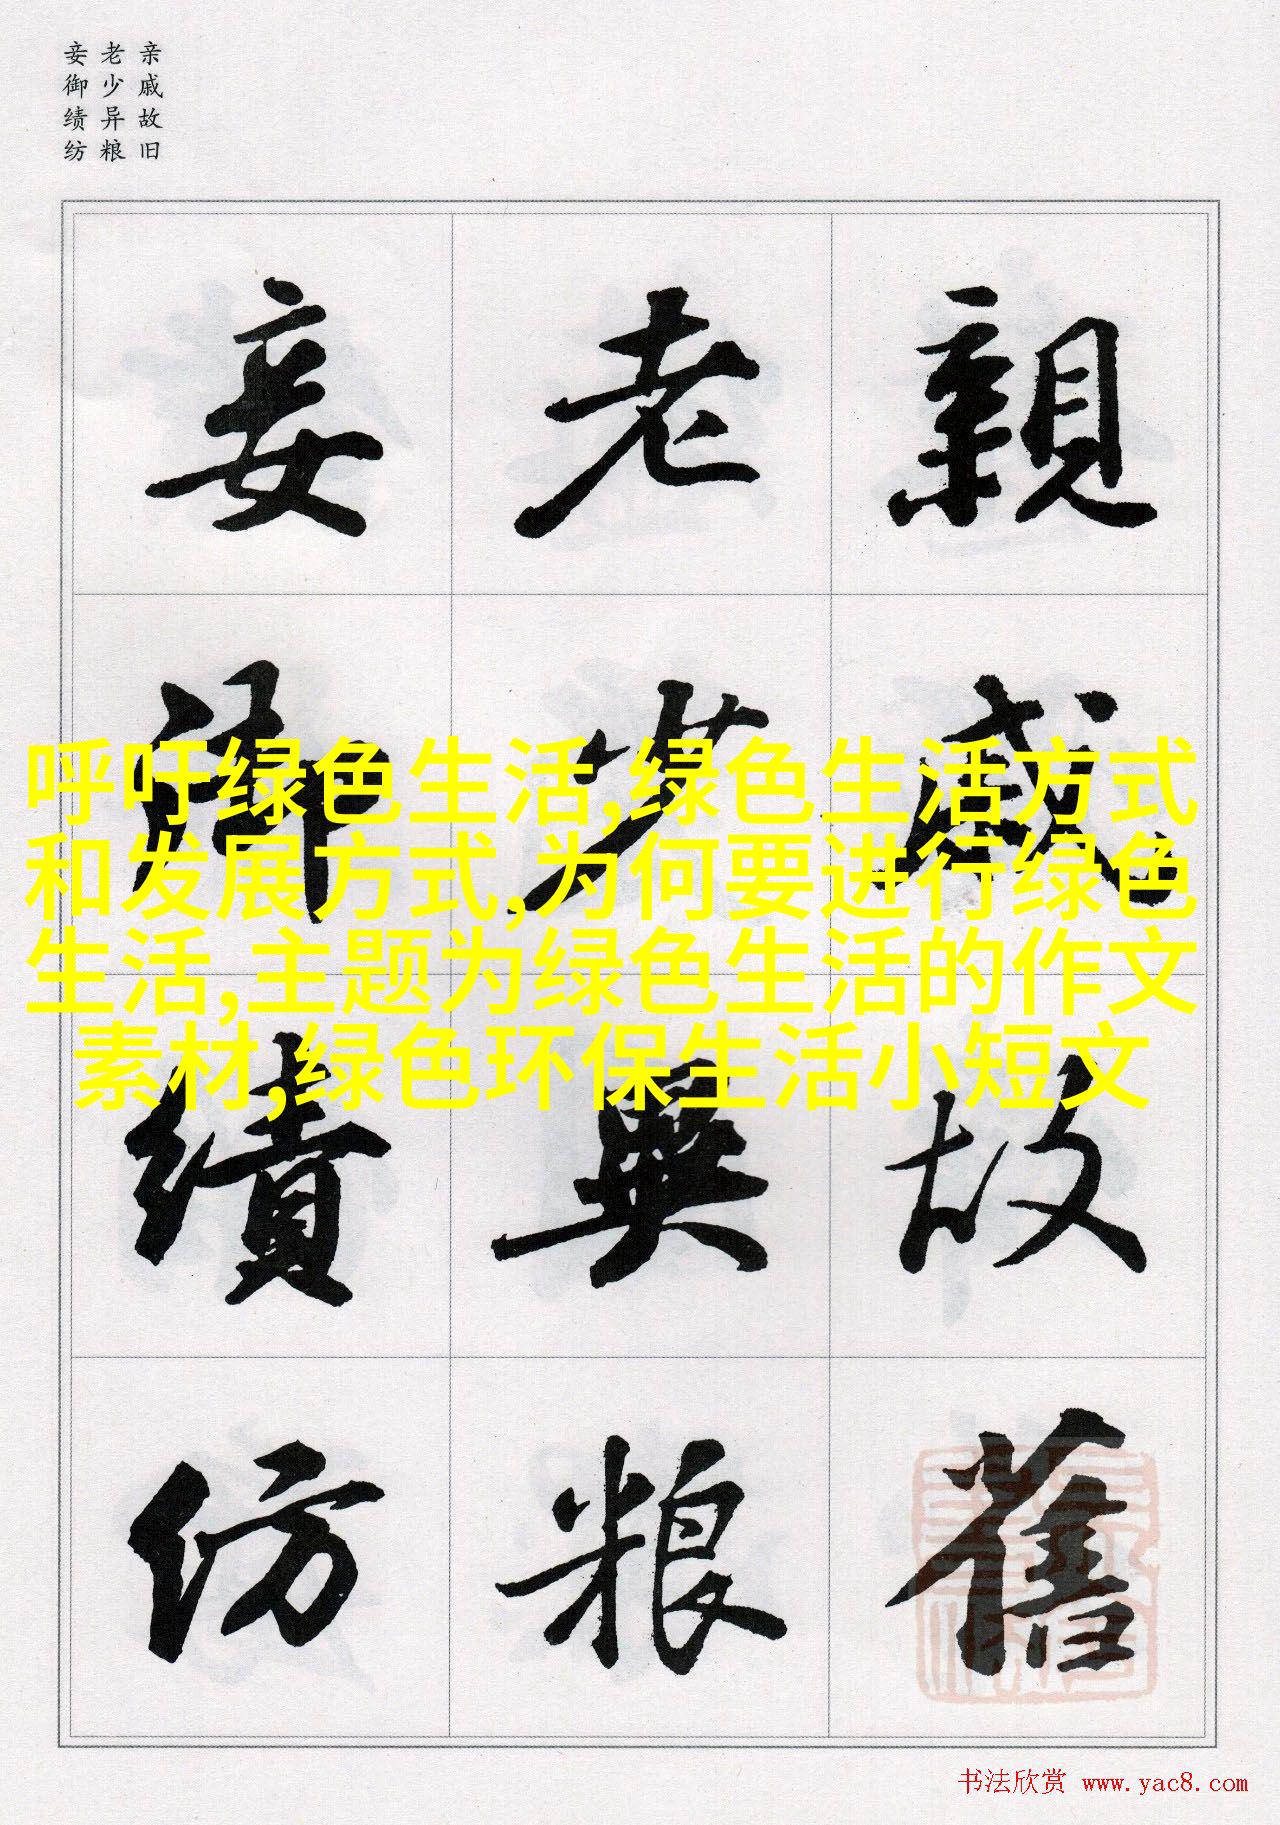 亲戚故旧
老少异粮
妾御绩纺
親戚故舊
老少異粮
妾御績紡
呼吁绿色生活,绿色生活方式
和发展方式,为何要进行绿色
生活,主题为绿色生活的作文
素材,绿色环保生活小短文
书法欣赏 www.yac8.com